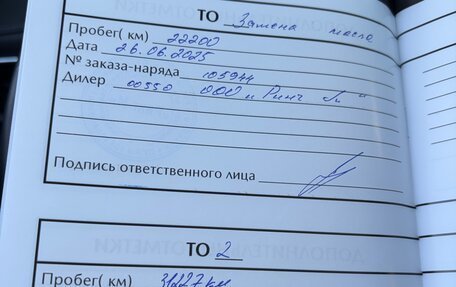 ТО Замена масла
Пробег( км) 22200
Дата 26.06.2025
№ заказа-наряда 105944
Дилер 00550 ООО "Ринг
Подпись ответственного лица
ТО 2
Пробег( км) 31227 км